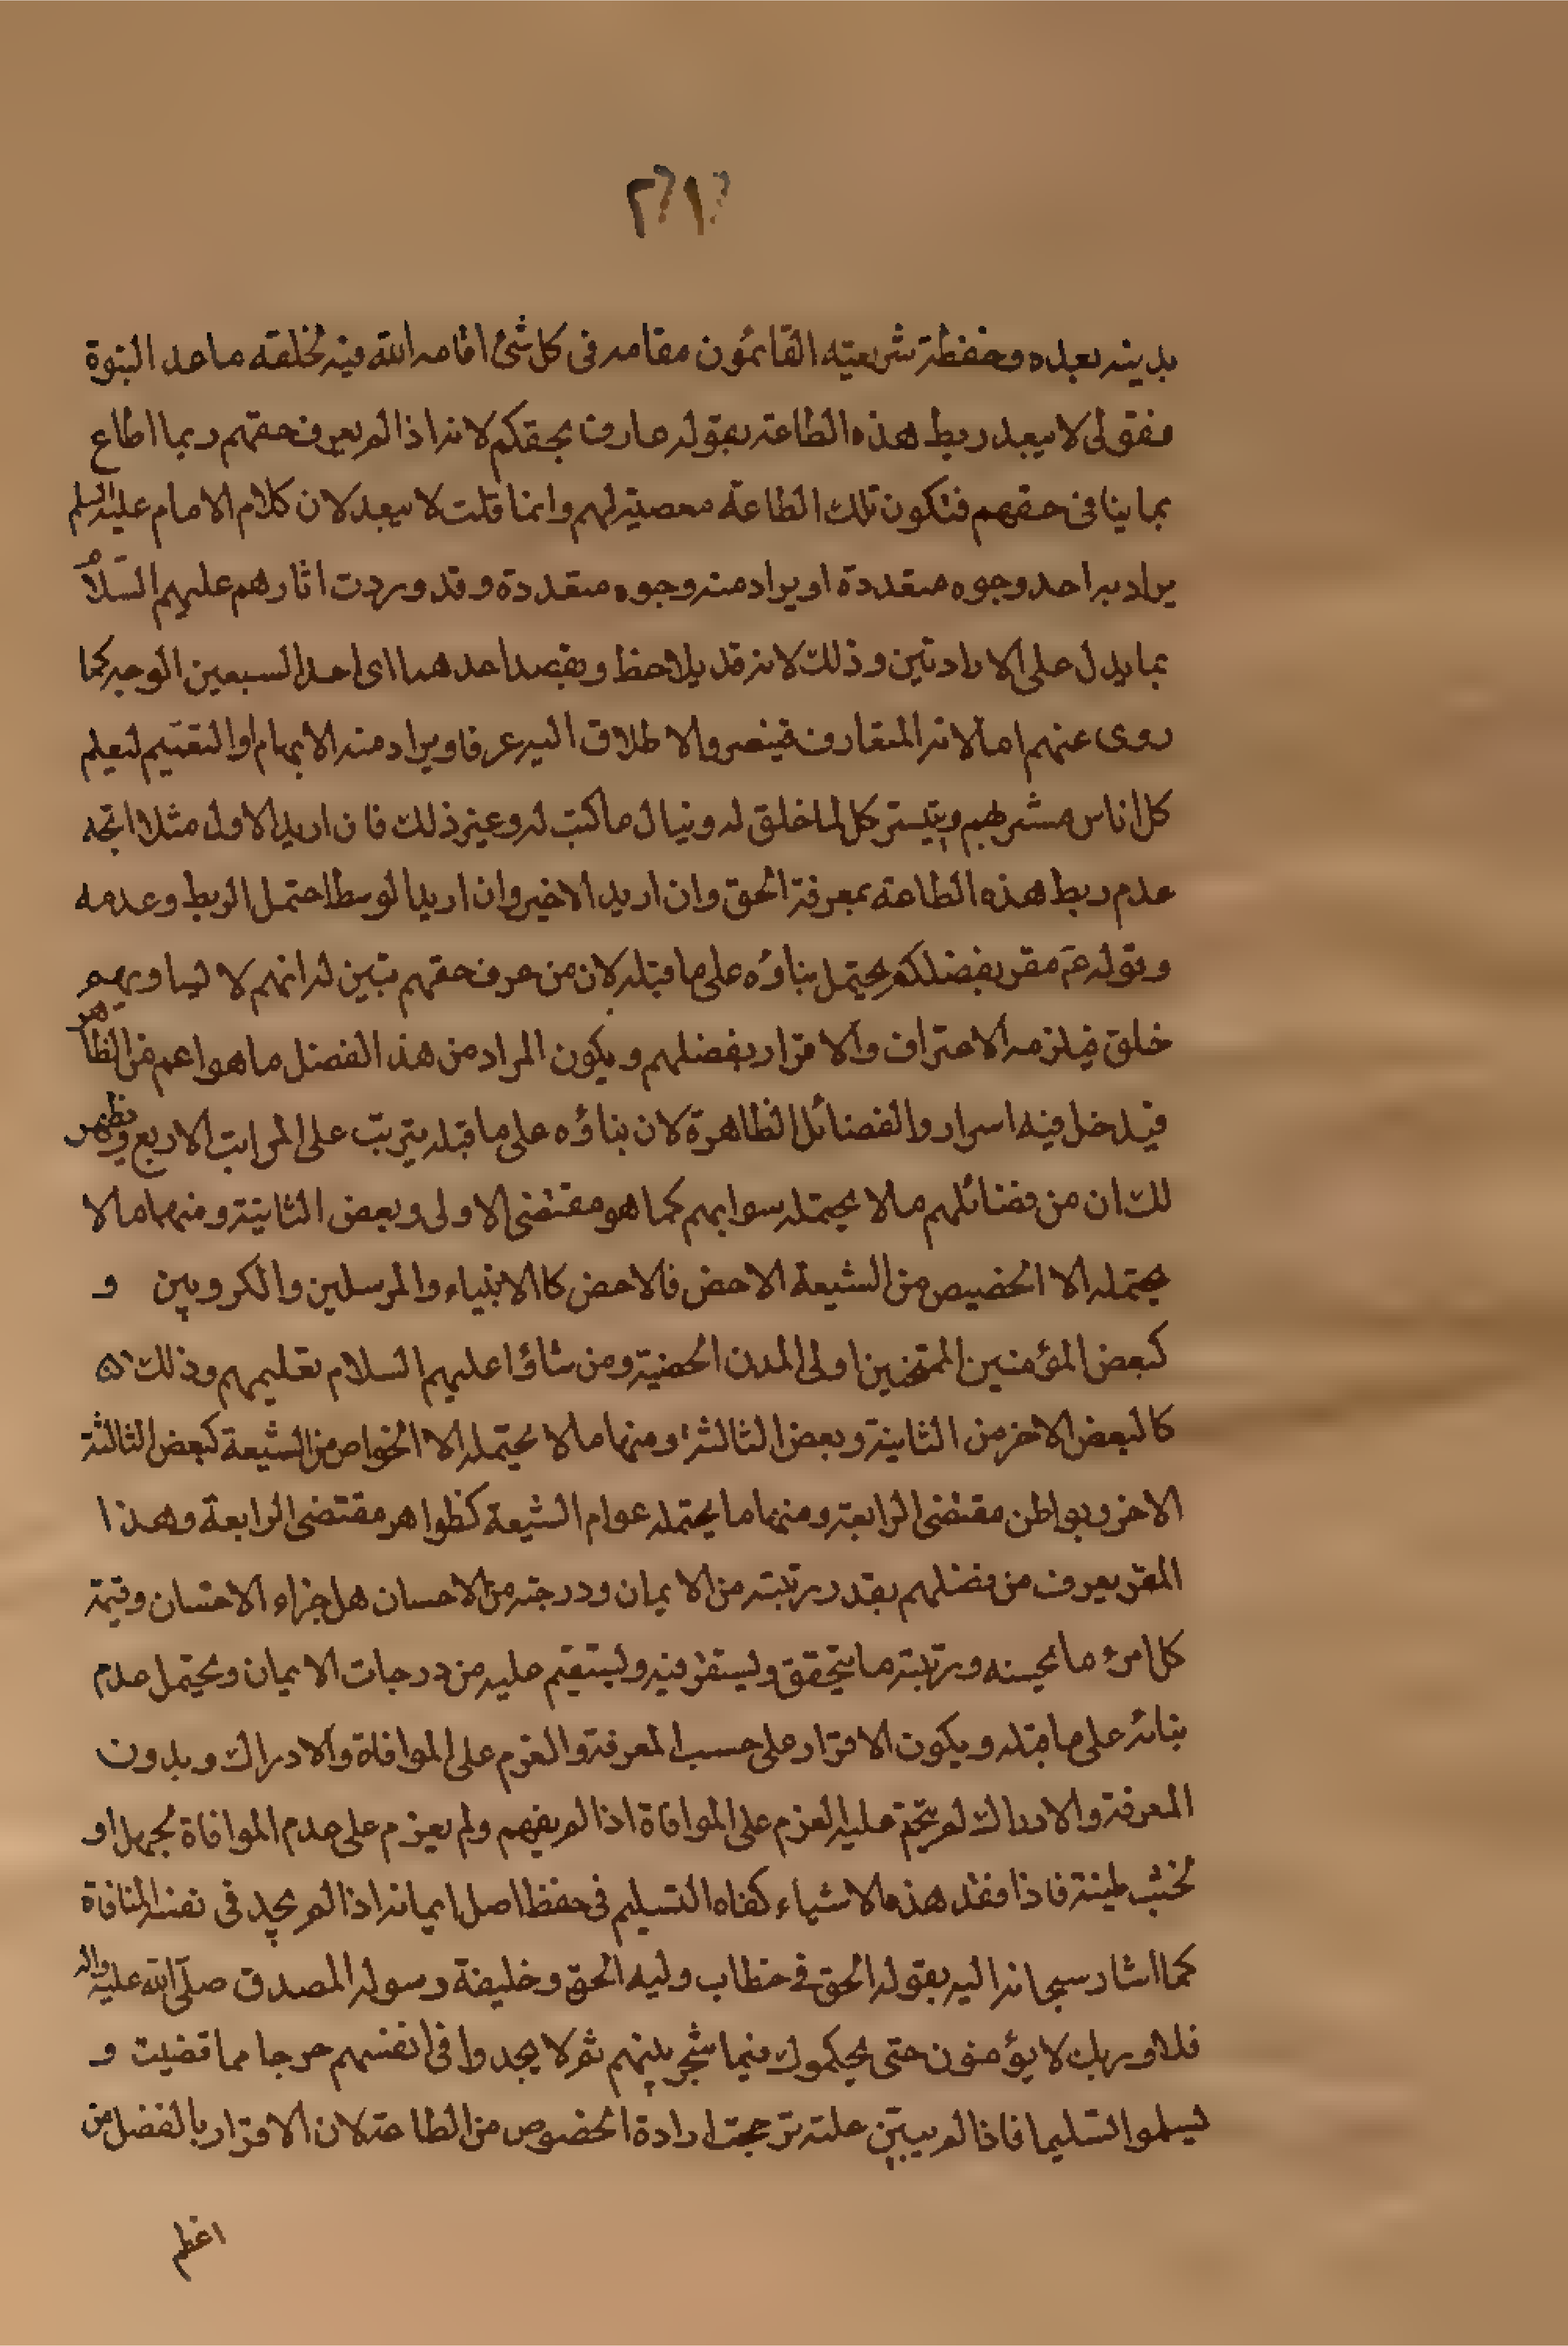 بدينه بعده وحفظة شريعته القائمون مقامه فى كل شئ اقامه الله فيه لخلقه ما عدا النبوة
فقولى لا يبعد ربط هذه الطاعة بقوله عارف بحقكم لانه اذا لم يعرف حقهم ربما اطاع
بما ينافى حقهم فتكون تلك الطاعة معصية لهم وانما قلت لا يبعد لان كلام الامام عليه السلم
يراد به احد وجوه متعددة او يراد منه وجوه متعددة وقد وردت اثارهم عليهم السلام
بما يدل على الارادتين وذلك لانه قد يلاحظ ويقصد احدهما اى احد السبعين الوجه كما
روى عنهم اما لانه المتعارف فينصرف الاطلاق اليه عرفا ويراد منه الابهام او التقسيم ليعلم
كل اناس مشربهم ويتيسر كل لما خلق له وينال ما كتب له وغير ذلك فان اريد الاول مثلا اتجه
عدم ربط هذه الطاعة بمعرفة الحق وان اريد الاخير وان اريد الوسط احتمل الربط وعدمه
وقوله ع مقر بفضلكم يحتمل بناؤه على ما قبله لان من عرف حقهم تبين له انهم لا يساويهم
خلق فيلزمه الاعتراف والاقرار بفضلهم ويكون المراد من هذا الفضل ما هو اعم من الظاهر
فيدخل فيه اسرار والفضائل الظاهرة لان بناؤه على ما قبله يترتب على المراتب الاربع ويظهر
لك ان من فضائلهم ما لا يحتمله سوايهم كما هو مقتضى الاولى وبعض الثانية ومنها ما لا
يحتمله الا الخصيص من الشيعة الاخص فالاخص كالانبياء والمرسلين والكروبيين و
كبعض المؤمنين الممتحنين اولى المدن الحصينة ومن شاؤا عليهم السلام تعليمهم وذلك
كالبعض الاخر من الثانية وبعض الثالثة ومنها ما لا يحتمله الا الخواص من الشيعة كبعض الثالثة
الاخر وبواطن مقتضى الرابعة ومنها ما يحتمله عوام الشيعة كظواهر مقتضى الرابعة وهذا
المقر يعرف من فضلهم بقدر رتبته من الايمان ودرجته من الاحسان هل جزاء الاحسان وقيمة
كل امرء ما يحسنه ورتبته ما يتحقق ويستقر فيه ويستقيم عليه من درجات الايمان ويحتمل عدم
بنائه على ما قبله ويكون الاقرار على حسب المعرفة والعزم على الموافاة والادراك وبدون
المعرفة والادراك لم يتحتم عليه العزم على الموافاة اذا لم يفهم ولم يعزم على عدم الموافاة لجهل او
لخبث طينة فاذا فقد هذه الاشياء كفاه التسليم فى حفظ اصل ايمانه اذا لم يجد فى نفسه المنافاة
كما اشار سبحانه اليه بقوله الحق فى خطاب وليه الحق وخليفة رسوله المصدق صلى الله عليه واله
فلا وربك لا يؤمنون حتى يحكموك فيما شجر بينهم ثم لا يجدوا فى انفسهم حرجا مما قضيت و
يسلموا تسليما فاذا لم يبيتن علته ترجحت ارادة الخصوص من الطاعة لان الاقرار بالفضل من
اعظم